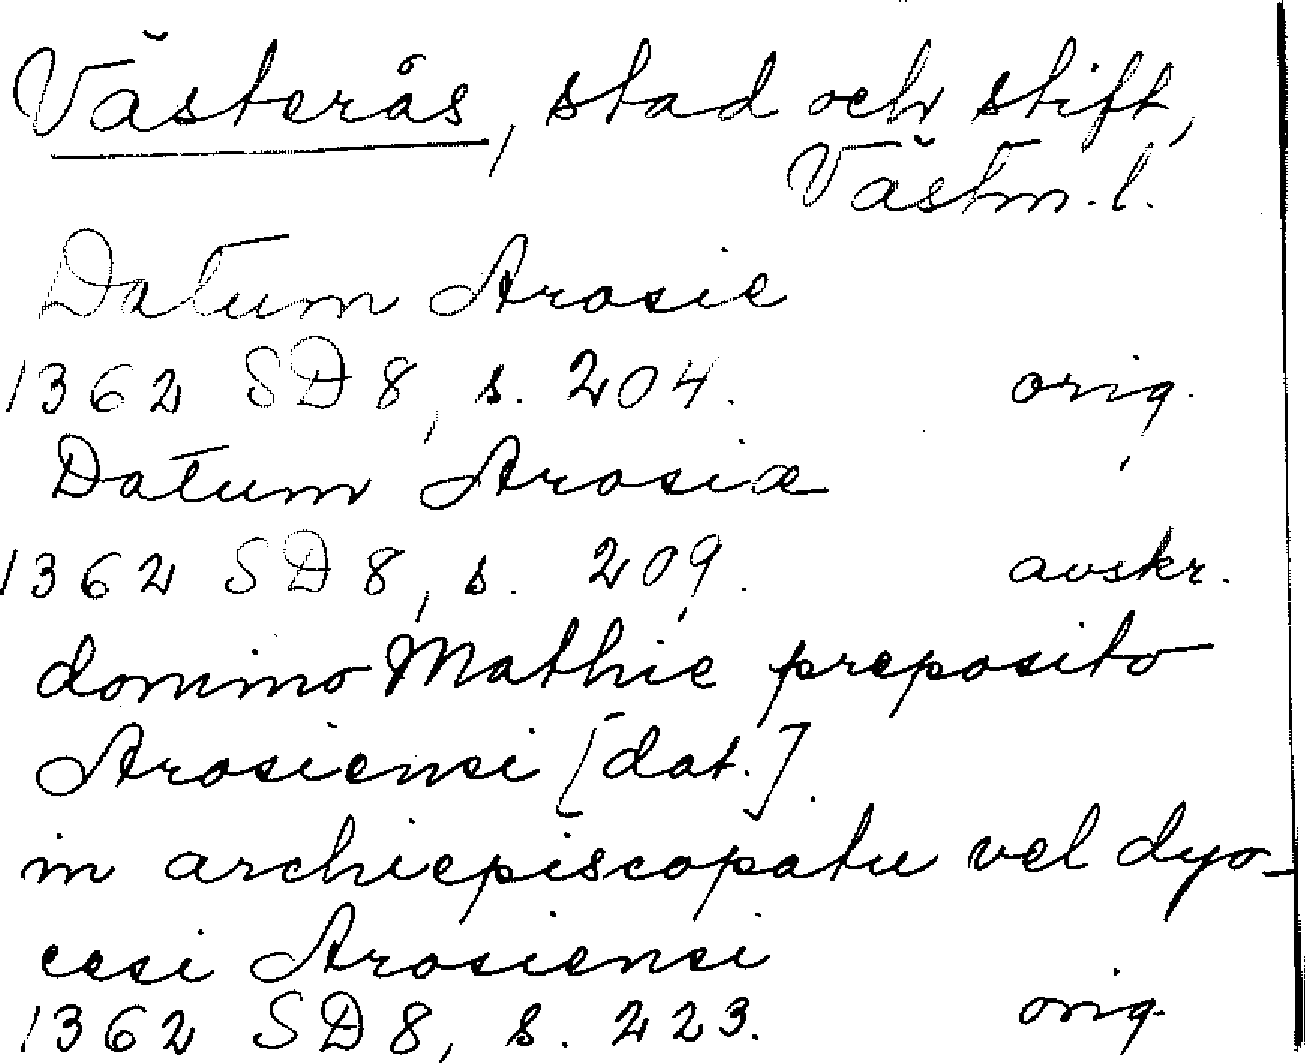 Västerås, stad och stift,
Västm. l.
Datum Arosie
1362 SD 8, s. 204. orig.
Datum Arosiæ
1362 SD 8, s. 209. avskr.
domino Mathie preposito
Arosiensi [dat.].
in archiepiscopatu vel dyo-
cesi Arosiensi
1362 SD 8, s. 223. orig.